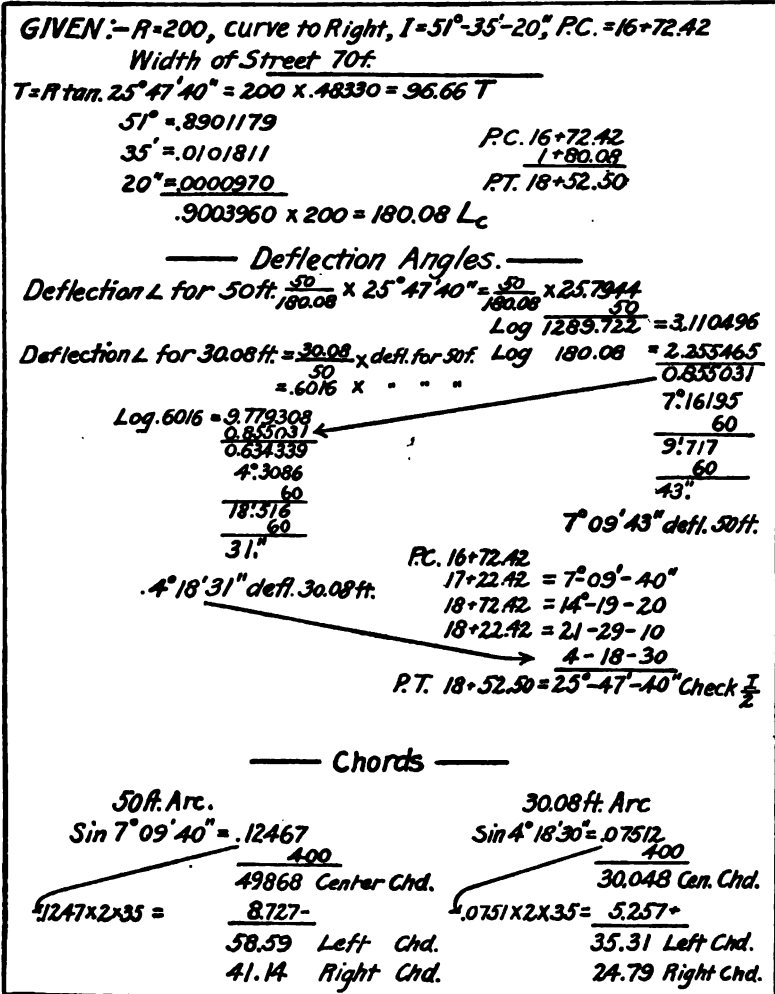 GIVEN:- R=200, curve to Right, I=51°-35'-20", P.C.=16+72.42
Width of Street 70f.
T=R tan. 25°47'40" = 200 x .48330 = 96.66 T
51° = .8901179
35' = .0101811
P.C. 16+72.42
1+80.08
20" = .0000970
P.T. 18+52.50
.9003960 x 200 = 180.08 Lc
Deflection Angles.
Deflection ∠ for 50ft. 50/180.08 x 25°47'40" = 50/180.08 x 25.7944
50
Log 1289.722 = 3.110496
Deflection ∠ for 30.08ft = 30.08/50 x defl. for 50f. Log 180.08 = 2.255465
= .6016 x " " "
0.855031
7°.16195
60
9'.717
60
43."
7°09'43" defl. 50ft.
Log .6016 = 9.779308
0.855031
0.634339
4°.3086
60
18'.516
60
31."
.4°18'31" defl. 30.08ft.
P.C. 16+72.42
17+22.42 = 7°-09'-40"
18+72.42 = 14°-19-20
18+22.42 = 21-29-10
4-18-30
P.T. 18+52.50 = 25°-47'-40" Check I/2
Chords
50ft. Arc.
Sin 7°09'40" = .12467
400
49868 Center Chd.
.1247x2x35 = 8.727-
58.59 Left Chd.
41.14 Right Chd.
30.08ft. Arc
Sin 4°18'30" = .07512
400
30.048 Cen. Chd.
.0751x2x35 = 5.257+
35.31 Left Chd.
24.79 Right Chd.